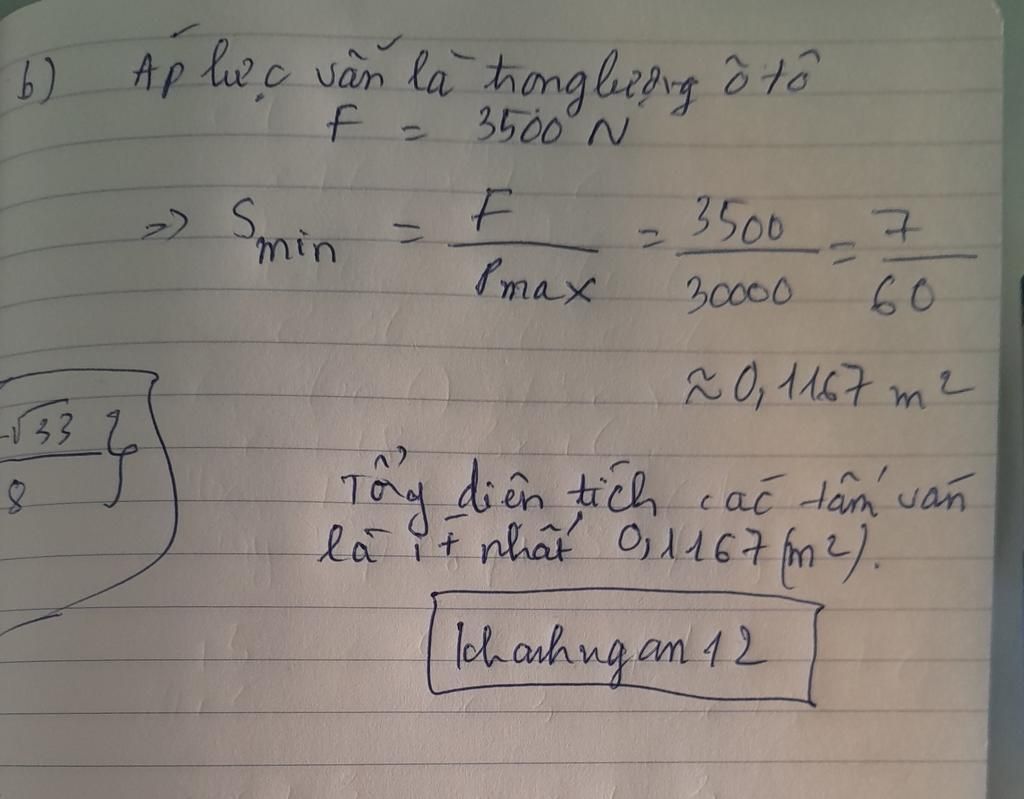 b) Áp lực vẫn là trọng lượng ô tô
F = 3500 N
=> Smin = F / Pmax = 3500 / 30000 = 7 / 60
≈ 0,1167 m²
-√33 / 8 }
Tổng diện tích các tấm ván
là ít nhất 0,1167 (m²).
khanhngan12